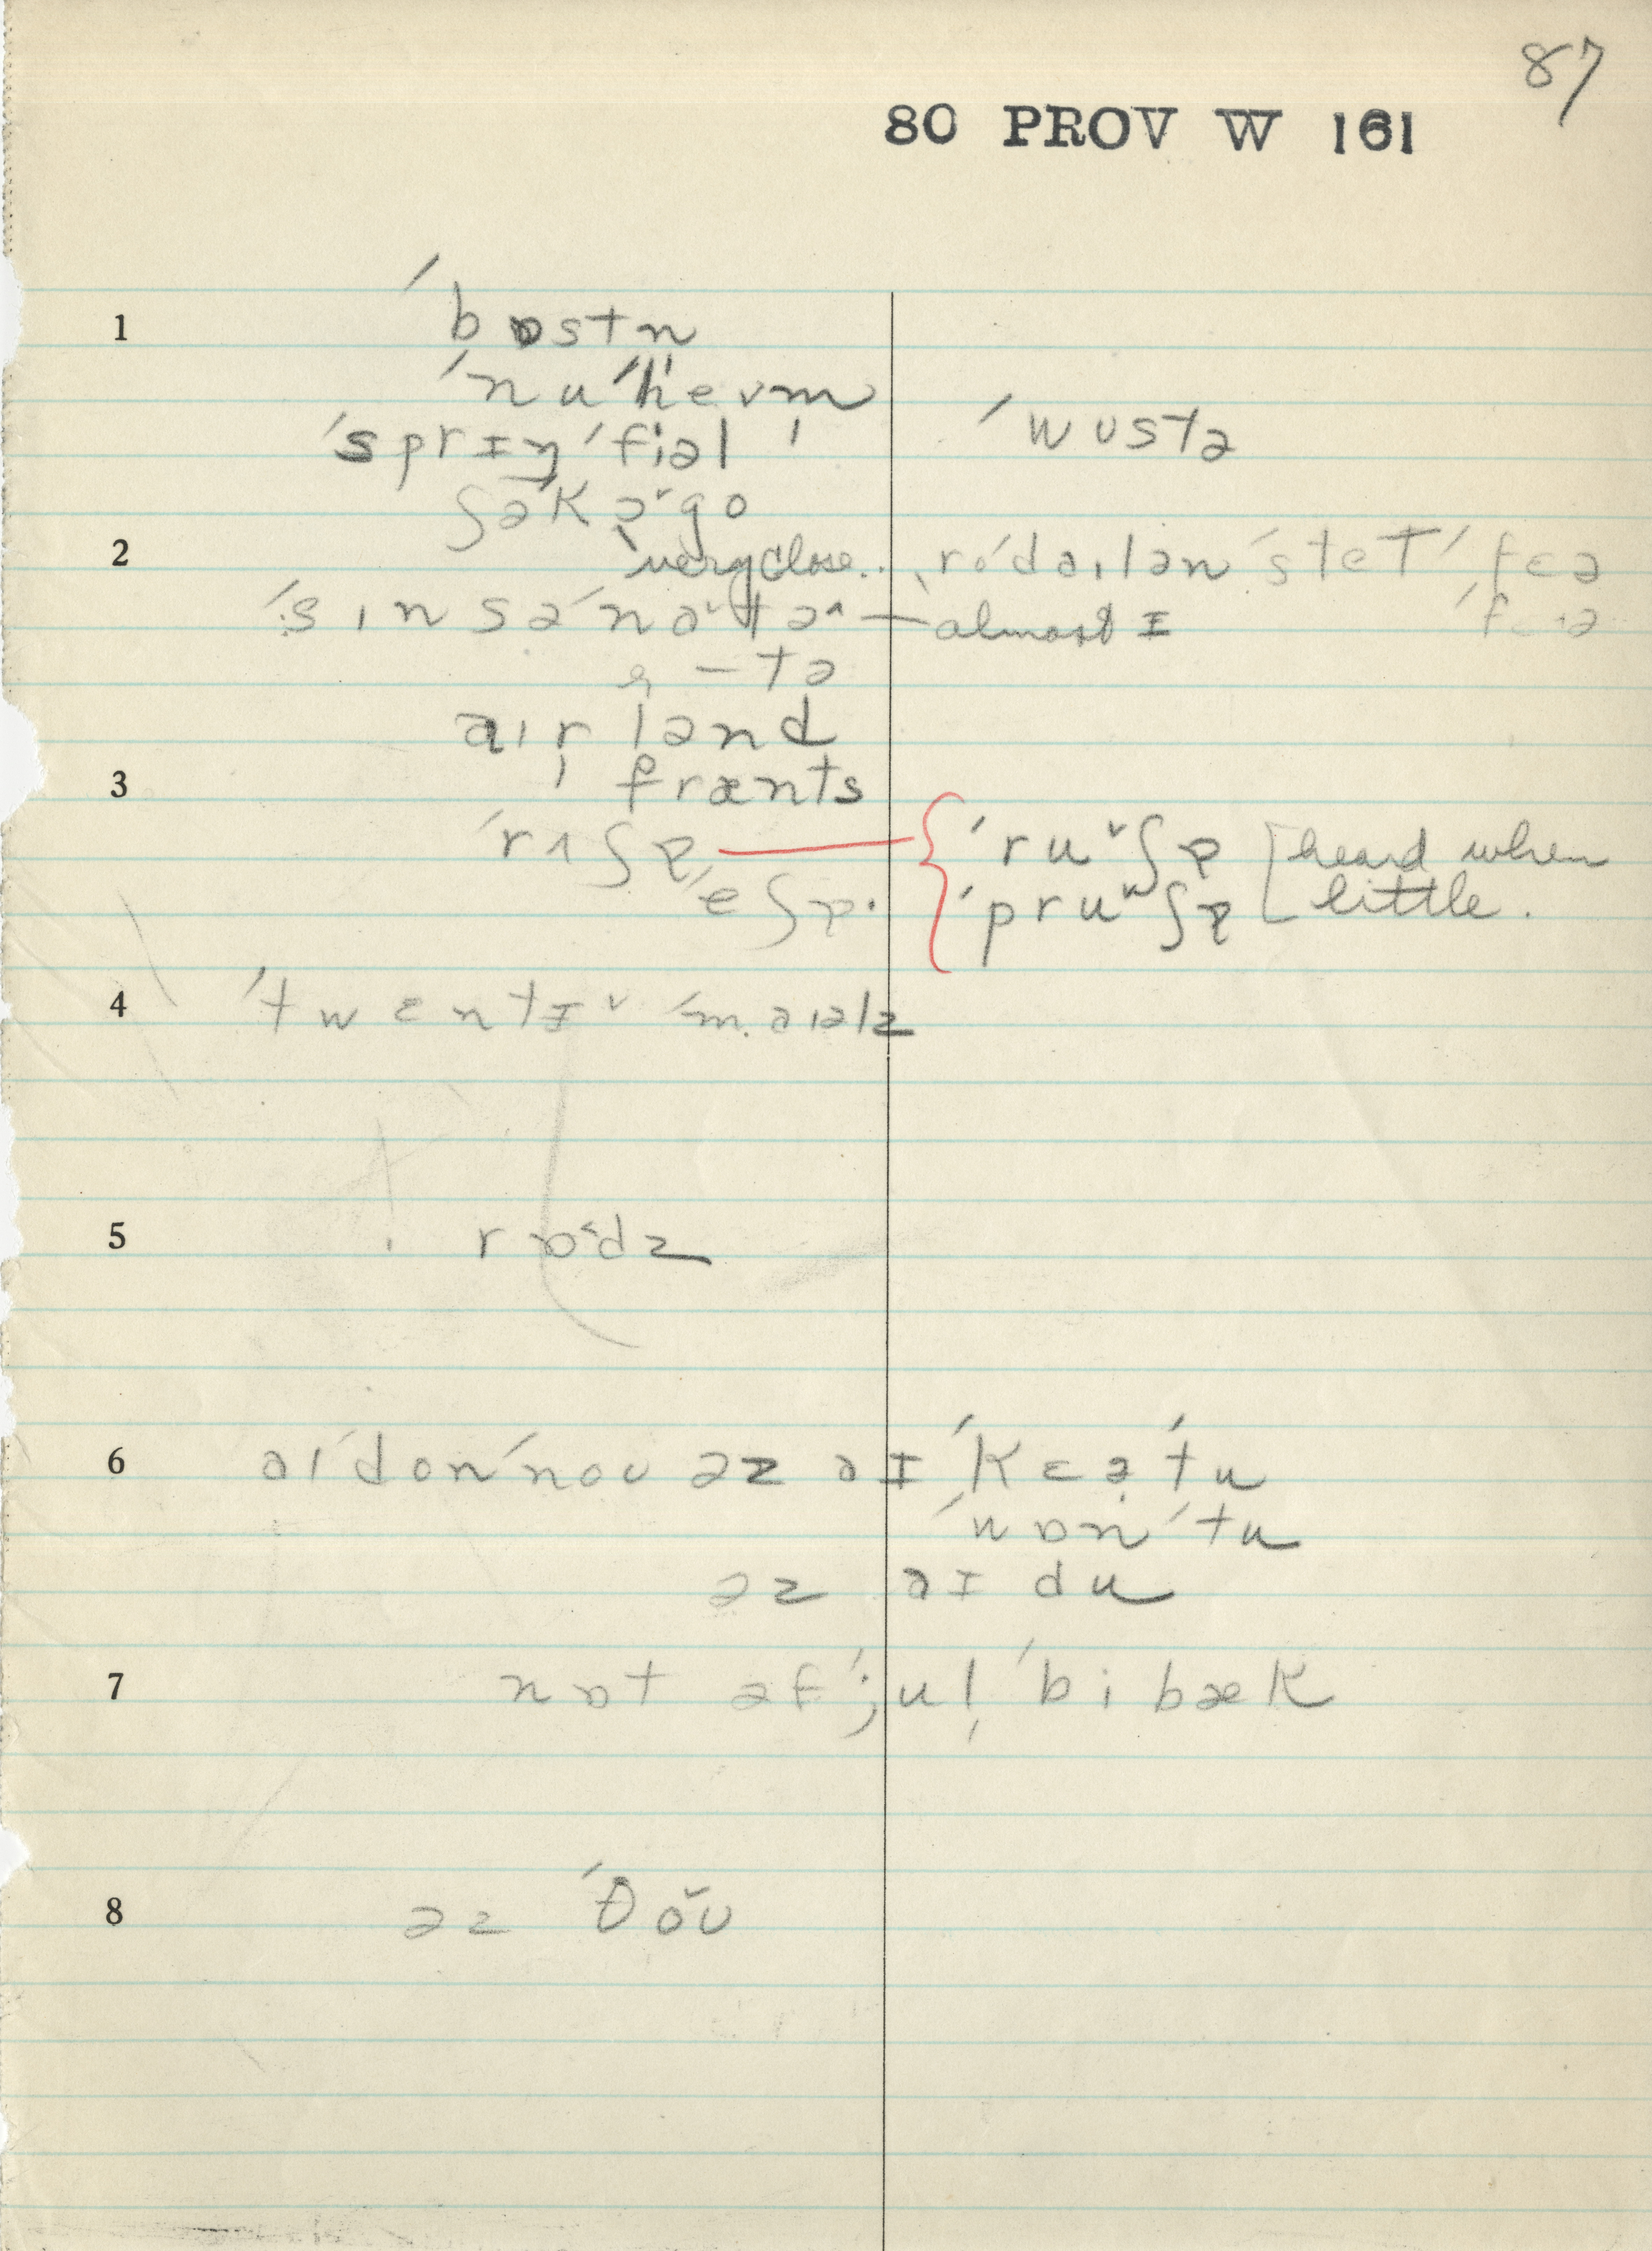 87
80 PROV W 161
1 ˈbɒstn̩
ˈnuˈhevm̩ ˈwʊstə
ˈsprɪŋˈfiəl
ʃəˈkɔ˅go
2 very close.. ˈroˈdaɪlənˈstetˈfɛə
ˈsɪnsəˈnatə˄ — almost ɪ ˈfɛə
— tə
aɪr̩lənd
3 frænts
ˈrʌʃp ˈru˅ʃp [heard when
ˈeʃp. ˈpruʷʃp little.
4 ˈtwɛntɪ˅ ˈm.aɪəlz
5 rɒ˂dz
6 aɪˈdonˈnoʊ əz aɪ ˈkɛəˈtu
ˈwɒnˈtu
əz aɪ du
7 nɒt əfˈjul̩ ˈbi bæk
8 əz ˈðoʊ̆